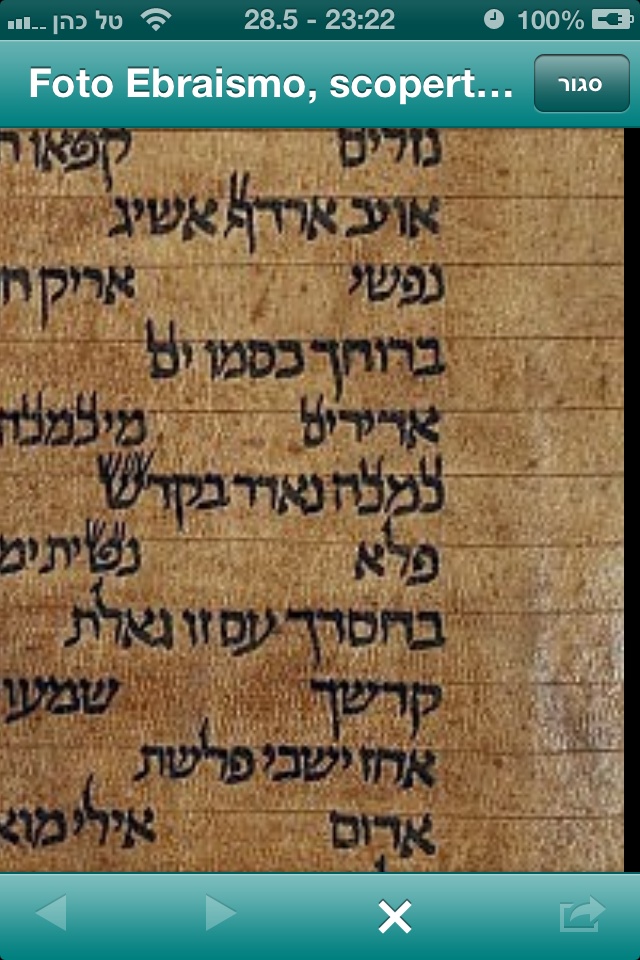 טל כהן 28.5 - 23:22 100%
Foto Ebraismo, scopert... סגור
נזלים קפאו ת
אויב ארדף אשיג
נפשי אריק ח
ברוחך כסמו ים
אדירים מי כמכה
כמכה נאדר בקדש
פלא נטית ימ
בחסדך עם זו גאלת
קדשך שמעו
אחז ישבי פלשת
אדום אילי מוא